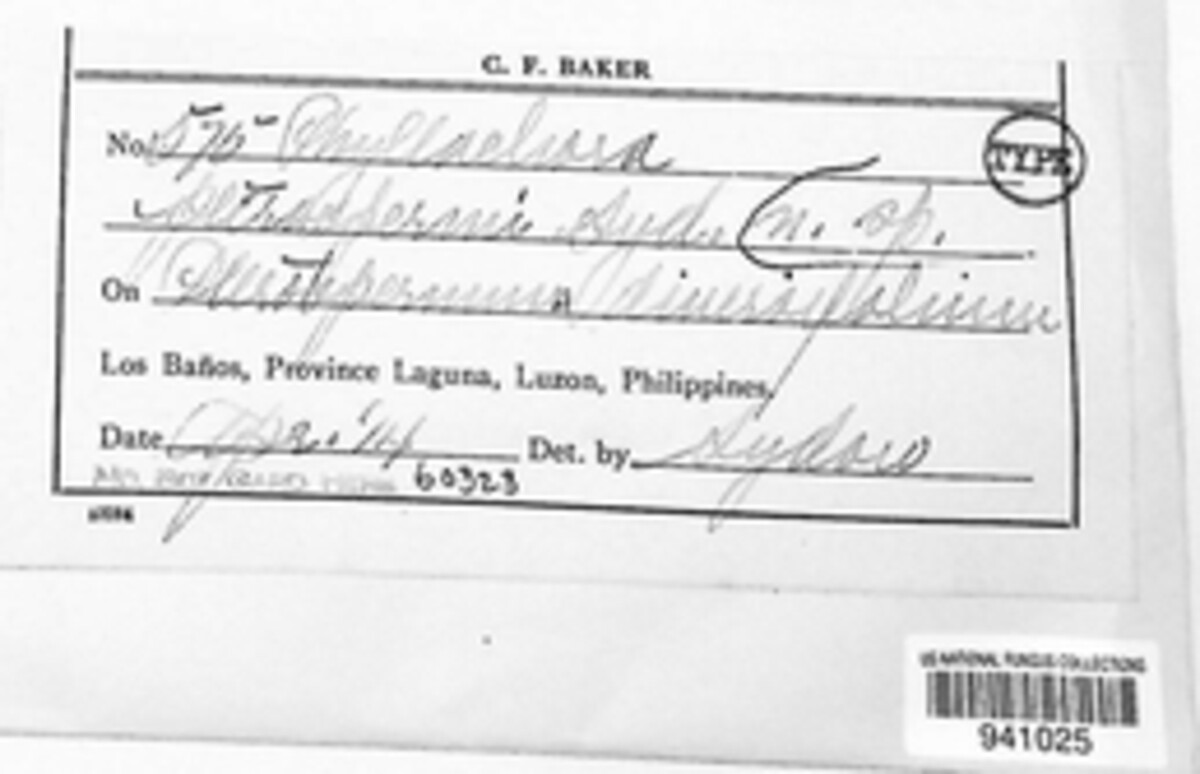 C. F. BAKER
No. Phyllachora
TYPE
Syd. n. sp.
On diversifolium
Los Baños, Province Laguna, Luzon, Philippines.
Date Apr. '14 Det. by Sydow
60323
US NATIONAL FUNGUS COLLECTIONS
941025